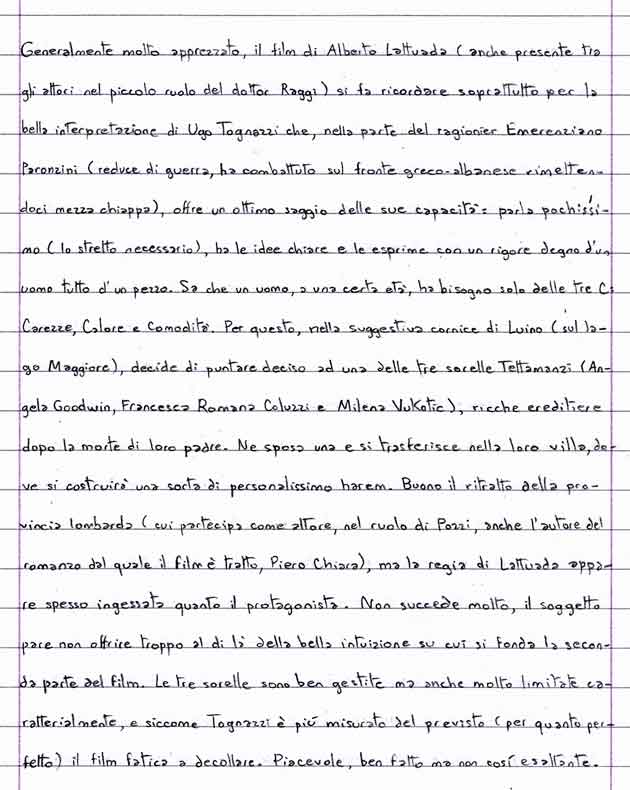 Generalmente molto apprezzato, il film di Alberto Lattuada (anche presente tra
gli attori nel piccolo ruolo del dottor Raggi) si fa ricordare soprattutto per la
bella interpretazione di Ugo Tognazzi che, nella parte del ragionier Emerenziano
Paronzini (reduce di guerra, ha combattuto sul fronte greco-albanese rimetten-
doci mezza chiappa), offre un ottimo saggio delle sue capacità: parla pochissi-
mo (lo stretto necessario), ha le idee chiare e le esprime con un rigore degno d'un
uomo tutto d'un pezzo. Sa che un uomo, a una certa età, ha bisogno solo delle tre C:
Carezze, Calore e Comodità. Per questo, nella suggestiva cornice di Luino (sul la-
go Maggiore), decide di puntare deciso ad una delle tre sorelle Tettamanzi (An-
gela Goodwin, Francesca Romana Coluzzi e Milena Vukotic), ricche ereditiere
dopo la morte di loro padre. Ne sposa una e si trasferisce nella loro villa, do-
ve si costruirà una sorta di personalissimo harem. Buono il ritratto della pro-
vincia lombarda (cui partecipa come attore, nel ruolo di Pozzi, anche l'autore del
romanzo dal quale il film è tratto, Piero Chiara), ma la regia di Lattuada appa-
re spesso ingessata quanto il protagonista. Non succede molto, il soggetto
pare non offrire troppo al di là della bella intuizione su cui si fonda la secon-
da parte del film. Le tre sorelle sono ben gestite ma anche molto limitate ca-
ratterialmente, e siccome Tognazzi è più misurato del previsto (per quanto per-
fetto) il film fatica a decollare. Piacevole, ben fatto ma non così esaltante.